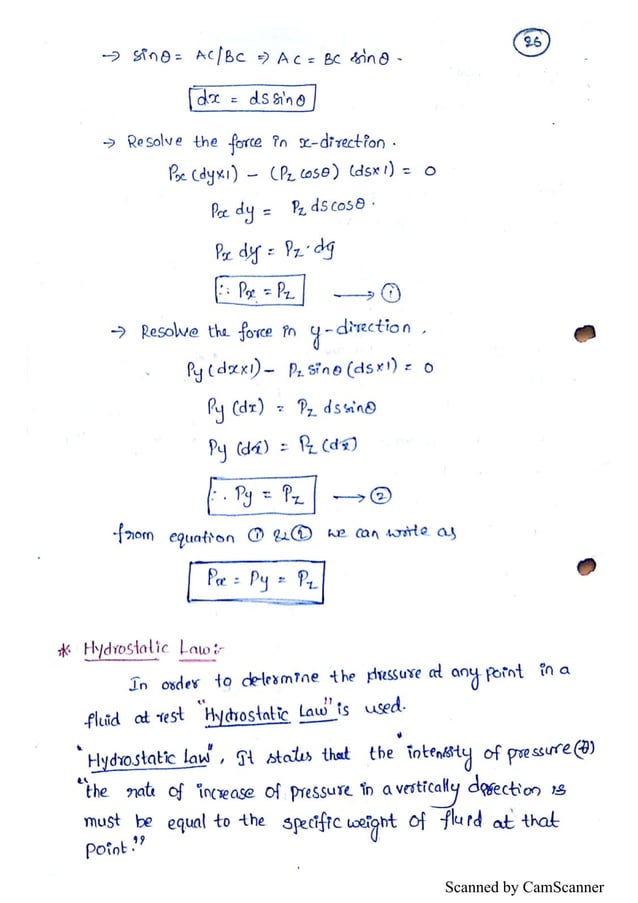 26
→ sinθ = AC/BC ⇒ AC = BC sinθ.
dx = ds sinθ
→ Resolve the force in x-direction.
Px (dy×1) - (Pz cosθ) (ds×1) = 0
Px dy = Pz ds cosθ.
Px dy = Pz · dy
∴ Px = Pz → ①
→ Resolve the force in y-direction.
Py (dx×1) - Pz sinθ (ds×1) = 0
Py (dx) = Pz ds sinθ
Py (dx) = Pz (dx)
∴ Py = Pz → ②
from equation ① & ② we can write as
Px = Py = Pz
* Hydrostatic Law:-
In order to determine the pressure at any point in a
fluid at rest "Hydrostatic Law" is used.
"Hydrostatic Law", It states that the "intensity of pressure (θ)
"the rate of increase of pressure in a vertically direction is
must be equal to the specific weight of fluid at that
point."
Scanned by CamScanner